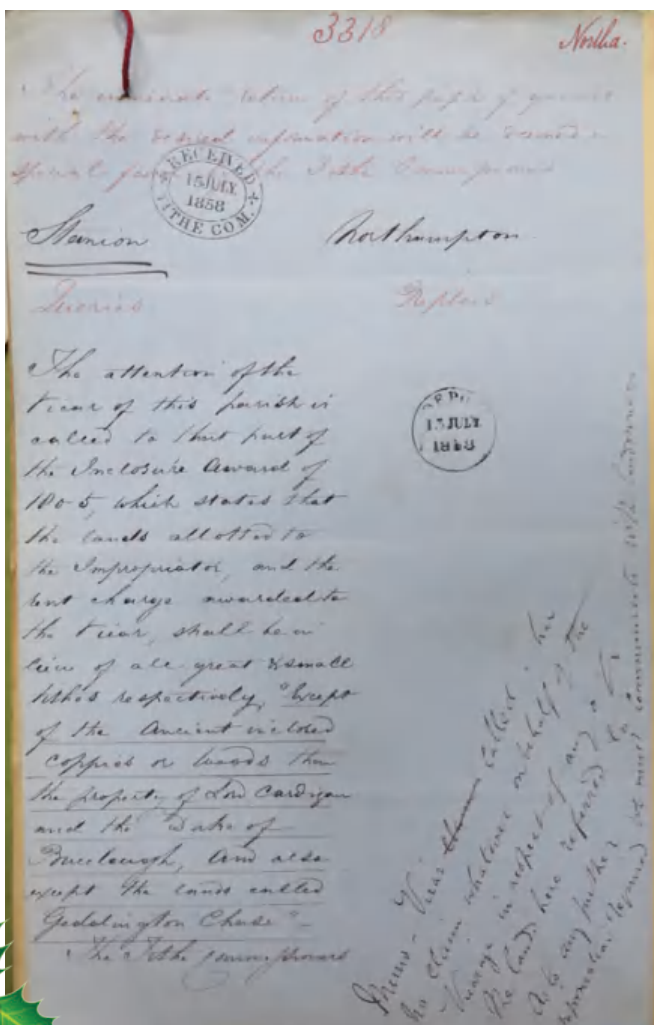 3318
Northa.
The immediate return of this paper of queries
with the desired information will be deemed a
special favor the Tithe Commissioners
RECEIVED
15 JULY
1858
TITHE COM.
Stanion
Northampton
Queries
Replies
The attention of the
Vicar of this parish is
called to that part of
the Inclosure Award of
1805, which states that
the lands allotted to
the Impropriator, and the
rent charge awarded to
the Vicar, shall be in
lieu of all great & small
tithes respectively, "Except
of the Ancient inclosed
coppices or woods then
the property of Lord Cardigan
and the Duke of
Buccleugh, and also
except the lands called
Geddington Chase" -
The Tithe Commissioners
15 JULY
1858
Vicar called
no claim whatever on behalf of the
Vicarage in respect of any
the lands here referred to.
As to any further
information required we must communicate with landowners